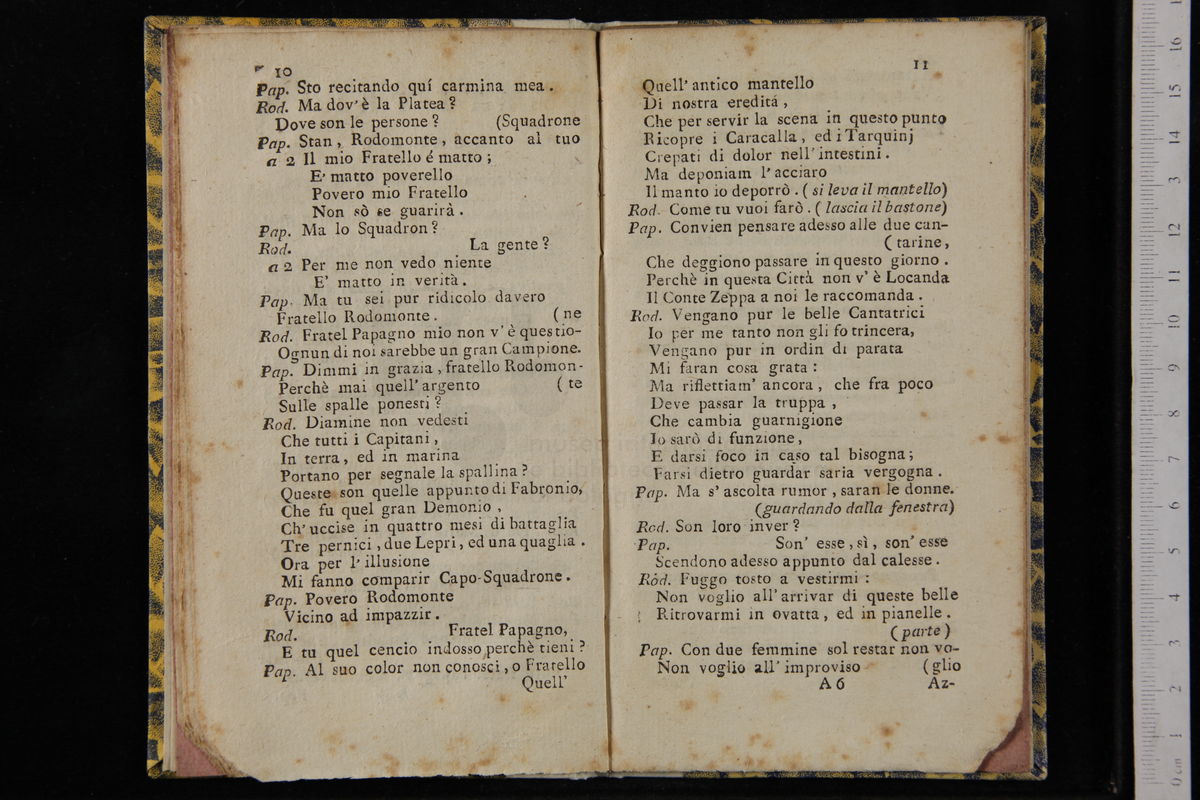 10
Pap. Sto recitando quí carmina mea.
Rod. Ma dov'è la Platea?
Dove son le persone? (Squadrone
Pap. Stan, Rodomonte, accanto al tuo
a 2 Il mio Fratello é matto;
E' matto poverello
Povero mio Fratello
Non sò se guarirà.
Pap. Ma lo Squadron?
Rod. La gente?
a 2 Per me non vedo niente
E' matto in verità.
Pap. Ma tu sei pur ridicolo davero
Fratello Rodomonte. (ne
Rod. Fratel Papagno mio non v'è questio-
Ognun di noi sarebbe un gran Campione.
Pap. Dimmi in grazia, fratello Rodomon-
Perchè mai quell'argento (te
Sulle spalle ponesti?
Rod. Diamine non vedesti
Che tutti i Capitani,
In terra, ed in marina
Portano per segnale la spallina?
Queste son quelle appunto di Fabronio,
Che fu quel gran Demonio,
Ch'uccise in quattro mesi di battaglia
Tre pernici, due Lepri, ed una quaglia.
Ora per l'illusione
Mi fanno comparir Capo-Squadrone.
Pap. Povero Rodomonte
Vicino ad impazzir.
Rod. Fratel Papagno,
E tu quel cencio indosso, perchè tieni?
Pap. Al suo color non conosci, o Fratello
Quell'
11
Quell'antico mantello
Di nostra ereditá,
Che per servir la scena in questo punto
Ricopre i Caracalla, ed i Tarquinj
Crepati di dolor nell'intestini.
Ma deponiam l'acciaro
Il manto io deporrò. (si leva il mantello)
Rod. Come tu vuoi farò. (lascia il bastone)
Pap. Convien pensare adesso alle due can-
(tarine,
Che deggiono passare in questo giorno.
Perchè in questa Città non v'è Locanda
Il Conte Zeppa a noi le raccomanda.
Rod. Vengano pur le belle Cantatrici
Io per me tanto non gli fo trincera,
Vengano pur in ordin di parata
Mi faran cosa grata:
Ma riflettiam' ancora, che fra poco
Deve passar la truppa,
Che cambia guarnigione
Io sarò di funzione,
E darsi foco in caso tal bisogna;
Farsi dietro guardar saria vergogna.
Pap. Ma s'ascolta rumor, saran le donne.
(guardando dalla fenestra)
Rod. Son loro inver?
Pap. Son' esse, sì, son' esse
Scendono adesso appunto dal calesse.
Rod. Fuggo tosto a vestirmi:
Non voglio all'arrivar di queste belle
Ritrovarmi in ovatta, ed in pianelle.
(parte)
Pap. Con due femmine sol restar non vo-
Non voglio all'improviso (glio
A 6 Az-